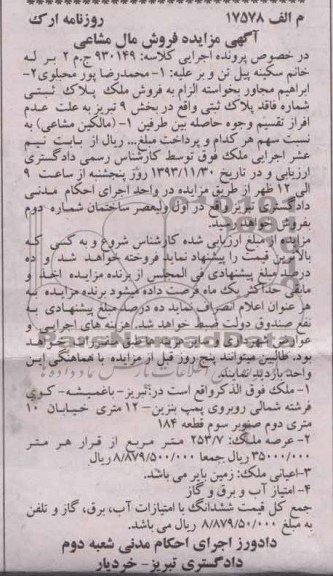 م الف ۱۷۵۷۸ روزنامه ارک
آگهی مزایده فروش مال مشاعی
در خصوص پرونده اجرایی کلاسه: ۹۳۰۱۴۹ ج.م ۲ بر له
خانم سکینه پیل تن و بر علیه: ۱- محمدرضا پور محبلوی۲-
ابراهیم مجاور بخواسته الزام به فروش ملک پلاک ثبتی
شماره فاقد پلاک ثبتی واقع در بخش ۹ تبریز به علت عدم
افراز تقسیم وجوه حاصله بین طرفین ۱- (مالکین مشاعی) به
نسبت سهم هر کدام و پرداخت مبلغ... ریال از بابت نیم
عشر اجرایی ملک فوق توسط کارشناس رسمی دادگستری
ارزیابی و در تاریخ ۱۳۹۳/۱۱/۳۰ روز پنجشنبه از ساعت ۹
الی ۱۲ ظهر از طریق مزایده در واحد اجرای احکام مدنی
دادگستری تبریز واقع در اول ولیعصر ساختمان شماره دوم
بفروش خواهد رسید.
مزایده از مبلغ ارزیابی شده کارشناس شروع و به کسی که
بالاترین قیمت را پیشنهاد نماید فروخته خواهد شد و ده
درصد مبلغ پیشنهادی فی المجلس از برنده مزایده اخذ و
مابقی حداکثر یک ماه فرصت داده میشود برنده مزایده به
هر عنوان اعلام انصراف نماید ده درصد مبلغ پیشنهادی به
نفع صندوق دولت ضبط خواهد شد. هزینه های اجرایی و
عوارض شهرداری و سایر هزینه ها طبق مقررات خواهد
بود. طالبین میتوانند پنج روز قبل از مزایده با هماهنگی این
واحد بازدید نمایند.
۱- ملک فوق الذکر واقع است در: تبریز- باغمیشه- کوی
فرشته شمالی روبروی پمپ بنزین- ۱۲ متری خیابان ۱۰
متری دوم صنوبر سوم قطعه ۱۸۴
۲- عرصه ملک: ۲۵۳/۷ متر مربع از قرار هر متر
۳۵/۰۰۰/۰۰۰ ریال جمعا ۸/۸۷۹/۵۰۰/۰۰۰ ریال
۳-اعیانی ملک: زمین بایر می باشد.
۴- امتیاز آب و برق و گاز
جمع کل قیمت ششدانگ با امتیازات آب، برق، گاز و تلفن
به مبلغ ۸/۸۷۹/۵۰/۰۰۰ ریال می باشد.
دادورز اجرای احکام مدنی شعبه دوم
دادگستری تبریز- خردیار